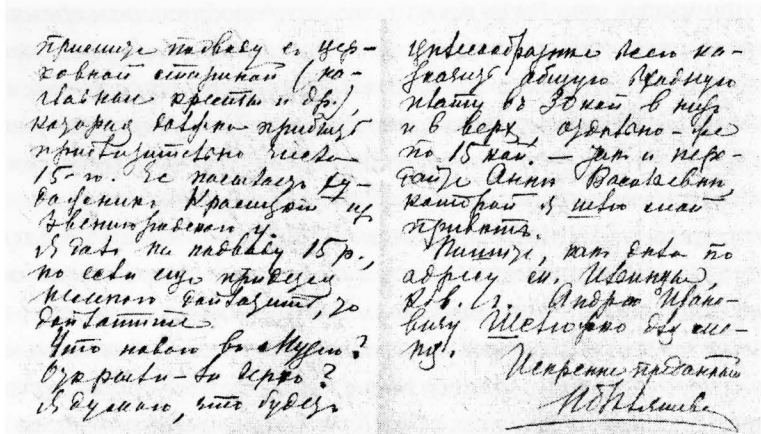 примите подводу с цер-
ковной стариной (на-
главныя кресты и др.),
которая должна прибыть
приблизительно числа
15-го. Ее посылает ху-
дожник Красицкий из
Звенигородского у.
Я дал на подводу 15 р.,
но если еще придется
немного доплатить, то
доплатите.
Что нового в Музее?
Открыли ли верхо?
Я думаю, что будет
целесообразнее всего на-
значить общую входную
плату въ 30 коп в низ
и в верх, отдельно-же
по 15 коп. — так и пере-
дайте Анне Васильевне,
которой я шлю мой
привет.
Пишите, как дела по
адресу ст. Ивинцы,
Ков. ж. Андрею Ивано-
вичу Шелюжко для ме-
ня.
Искренне преданный
Н Біляшевс